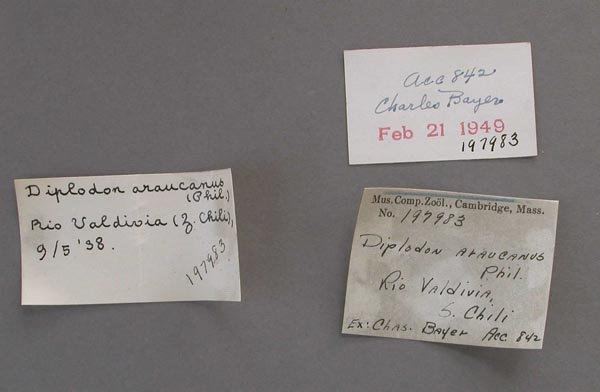 Diplodon araucanus
(Phil.)
Rio Valdivia (Z. Chili),
9/5 '38.
197983
Acc 842
Charles Bayer
Feb 21 1949
197983
Mus. Comp. Zoöl., Cambridge, Mass.
No. 197983
Diplodon araucanus
Phil.
Rio Valdivia,
S. Chili
Ex: Chas. Bayer Acc 842